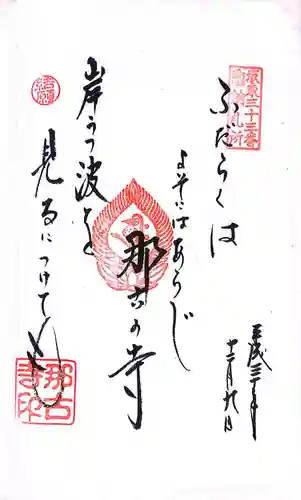 坂東三十三番
ふだらくは
よそにはあらじ
那古の寺
岸うつ波を
見るにつけても
平成三十年
十二月九日
結願
那古
寺印